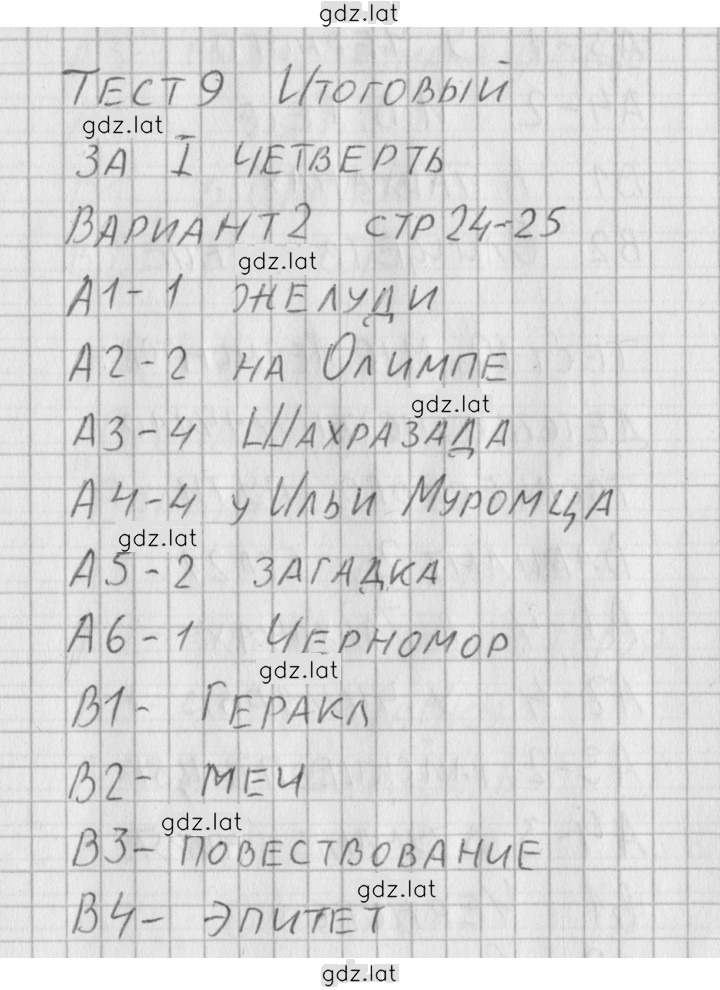 gdz.lat
Тест 9 Итоговый
gdz.lat
за I четверть
Вариант 2 стр 24-25
gdz.lat
А1 - 1 желуди
А2 - 2 на Олимпе
gdz.lat
А3 - 4 Шахразада
А4 - 4 у Ильи Муромца
gdz.lat
А5 - 2 загадка
А6 - 1 Черномор
gdz.lat
В1 - Геракл
В2 - меч
gdz.lat
В3 - повествование
gdz.lat
В4 - эпитет
gdz.lat